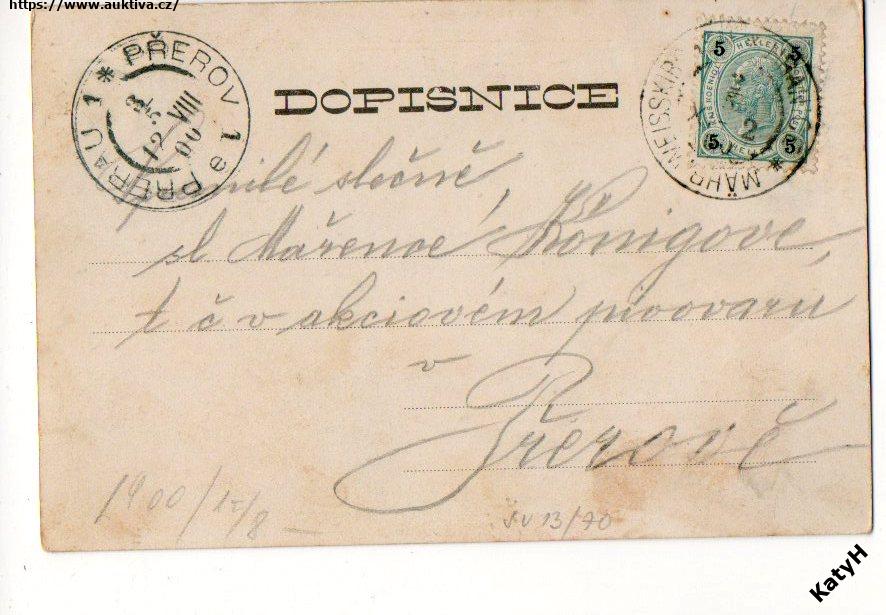 https://www.auktiva.cz/
PŘEROV 1 a PRERAU 1 *
12 VIII 00
DOPISNICE
5 HELLER 5
5 5
MÄHR. WEISSKIRCHEN *
milé slečně,
sl Mařence Königove,
t č v akciovém pivovaru
v
Přerově
1900/12/8
13/70
KatyH